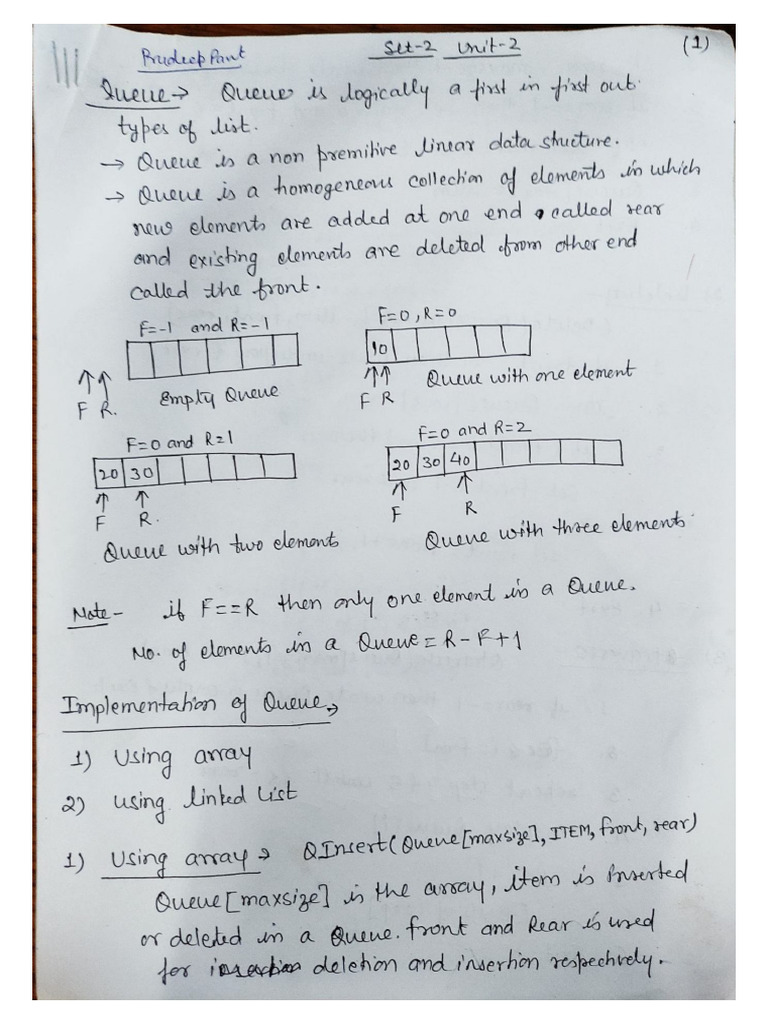 Pradeep Pant Set-2 Unit-2 (1)
Queue → Queue is logically a first in first out
types of list.
→ Queue is a non premitive linear data structure.
→ Queue is a homogeneous collection of elements in which
new elements are added at one end called rear
and existing elements are deleted from other end
called the front.
F=-1 and R=-1
F=0, R=0
10
F R.
Empty Queue
F R
Queue with one element
F=0 and R=1
F=0 and R=2
20 30
20 30 40
F R.
F R
Queue with two element
Queue with three elements
Note - if F==R then only one element in a Queue.
No. of elements in a Queue = R-F+1
Implementation of Queue →
1) Using array
2) using linked list
1) Using array → QInsert(Queue[maxsize], ITEM, front, rear)
Queue[maxsize] is the array, item is inserted
or deleted in a Queue. front and Rear is used
for insertion deletion and insertion respectively.